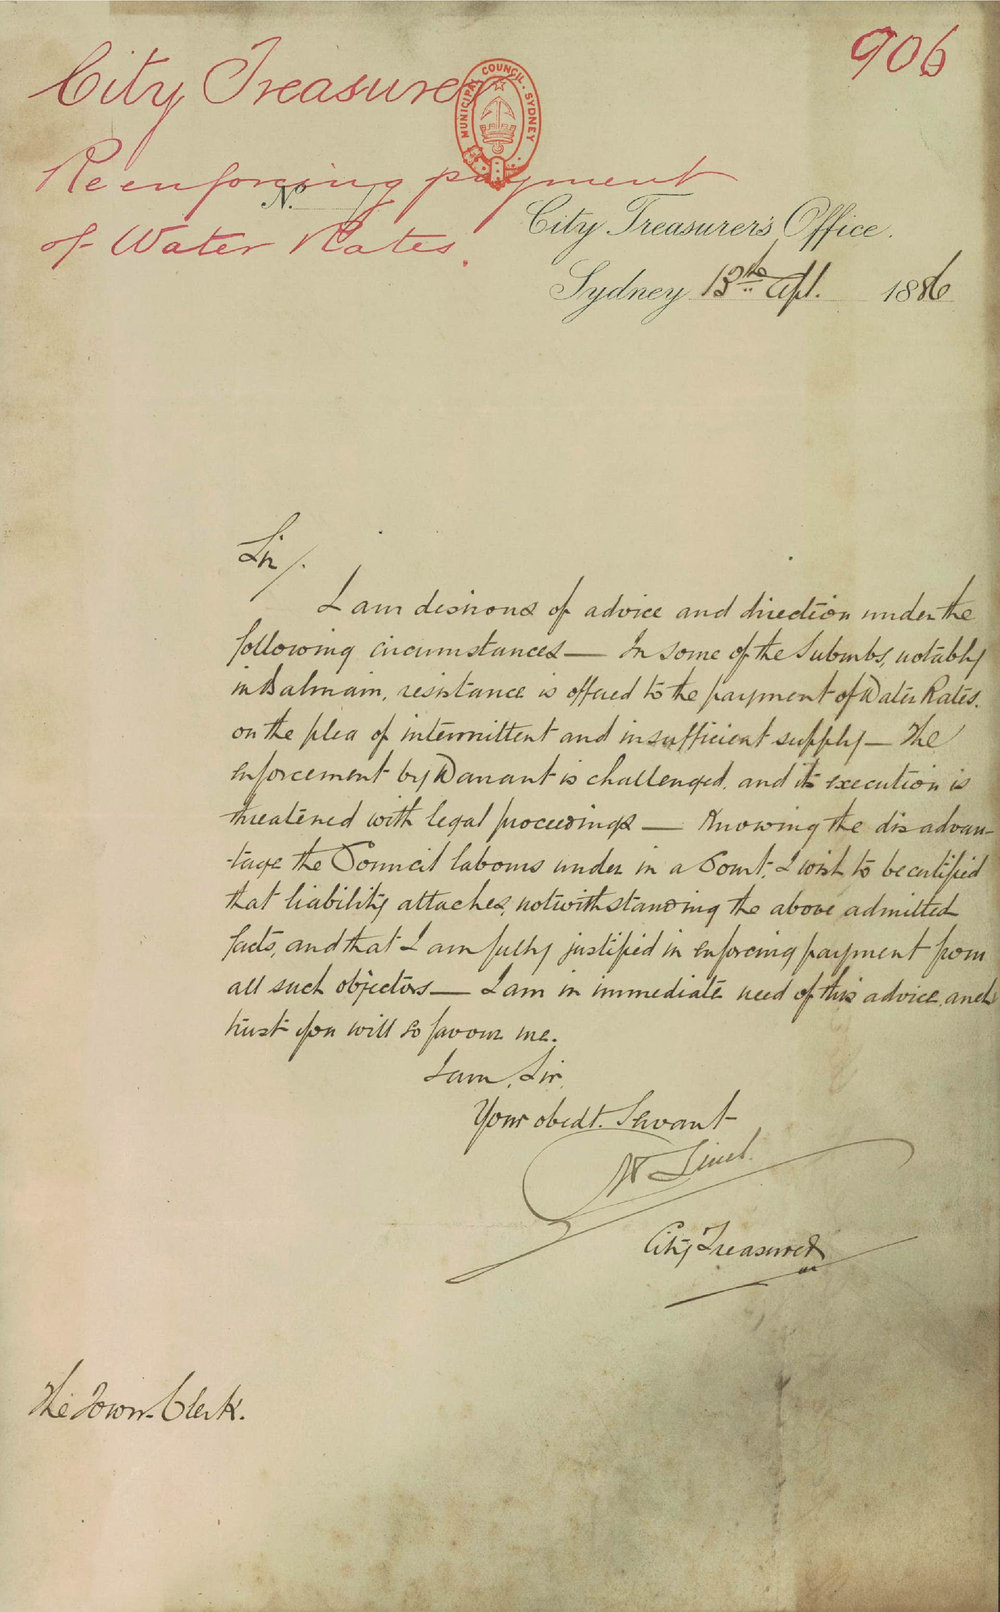 906
City Treasurer
MUNICIPAL COUNCIL. SYDNEY
Re enforcing payment
of Water Rates.
No.
City Treasurer's Office.
Sydney 13th Apl. 1886
Sir/.
I am desirous of advice and direction under the
following circumstances — In some of the Suburbs, notably
in Balmain, resistance is offered to the payment of Water Rates.
on the plea of intermittent and insufficient supply — The
enforcement by Warrant is challenged, and its execution is
threatened with legal proceedings — Knowing the disadvan-
-tage the Council labours under in a Court, I wish to be certified
that liability attaches, notwithstanding the above admitted
facts, and that I am fully justified in enforcing payment from
all such objectors — I am in immediate need of this advice, and
trust you will so favour me.
I am, Sir,
Your obedt. Servant
City Treasurer
The Town Clerk.